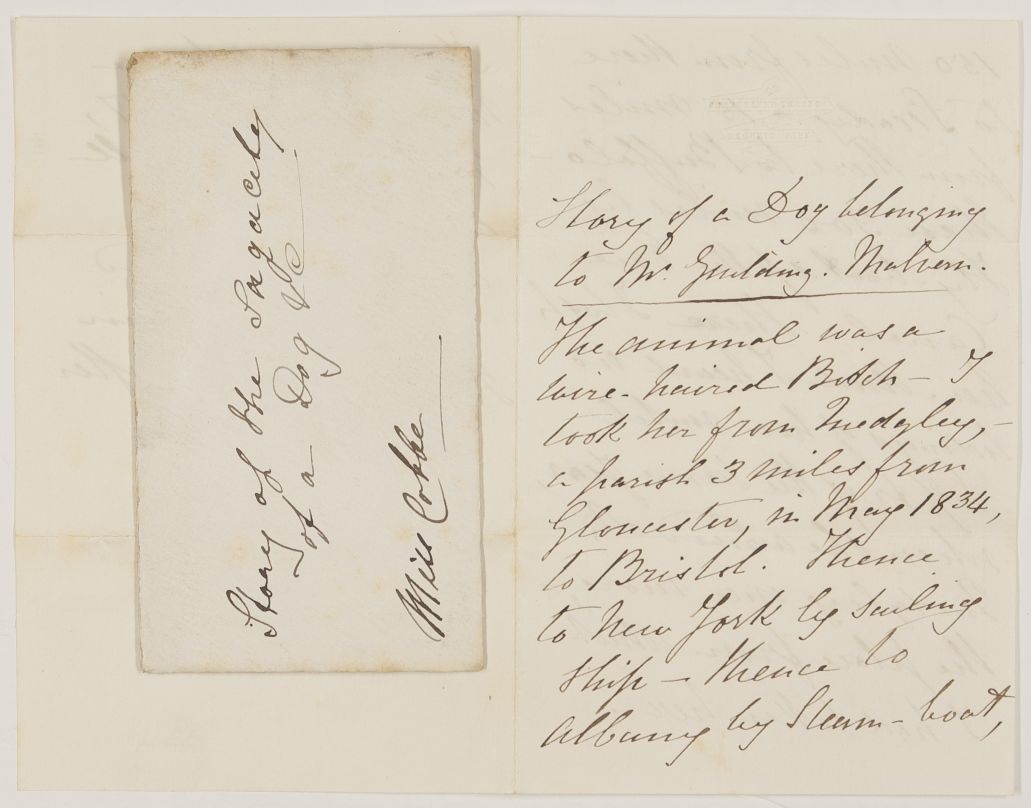 Story of the Sagacity
of a Dog &c
Miss Cobbe
Story of a Dog belonging
to Mr. Guilding. Malvern.
The animal was a
wire-haired Bitch — I
took her from Quedgley, –
a parish 3 miles from
Gloucester, in May 1834,
to Bristol. Thence
to New York by sailing
ship — thence to
Albany by Steam-boat,